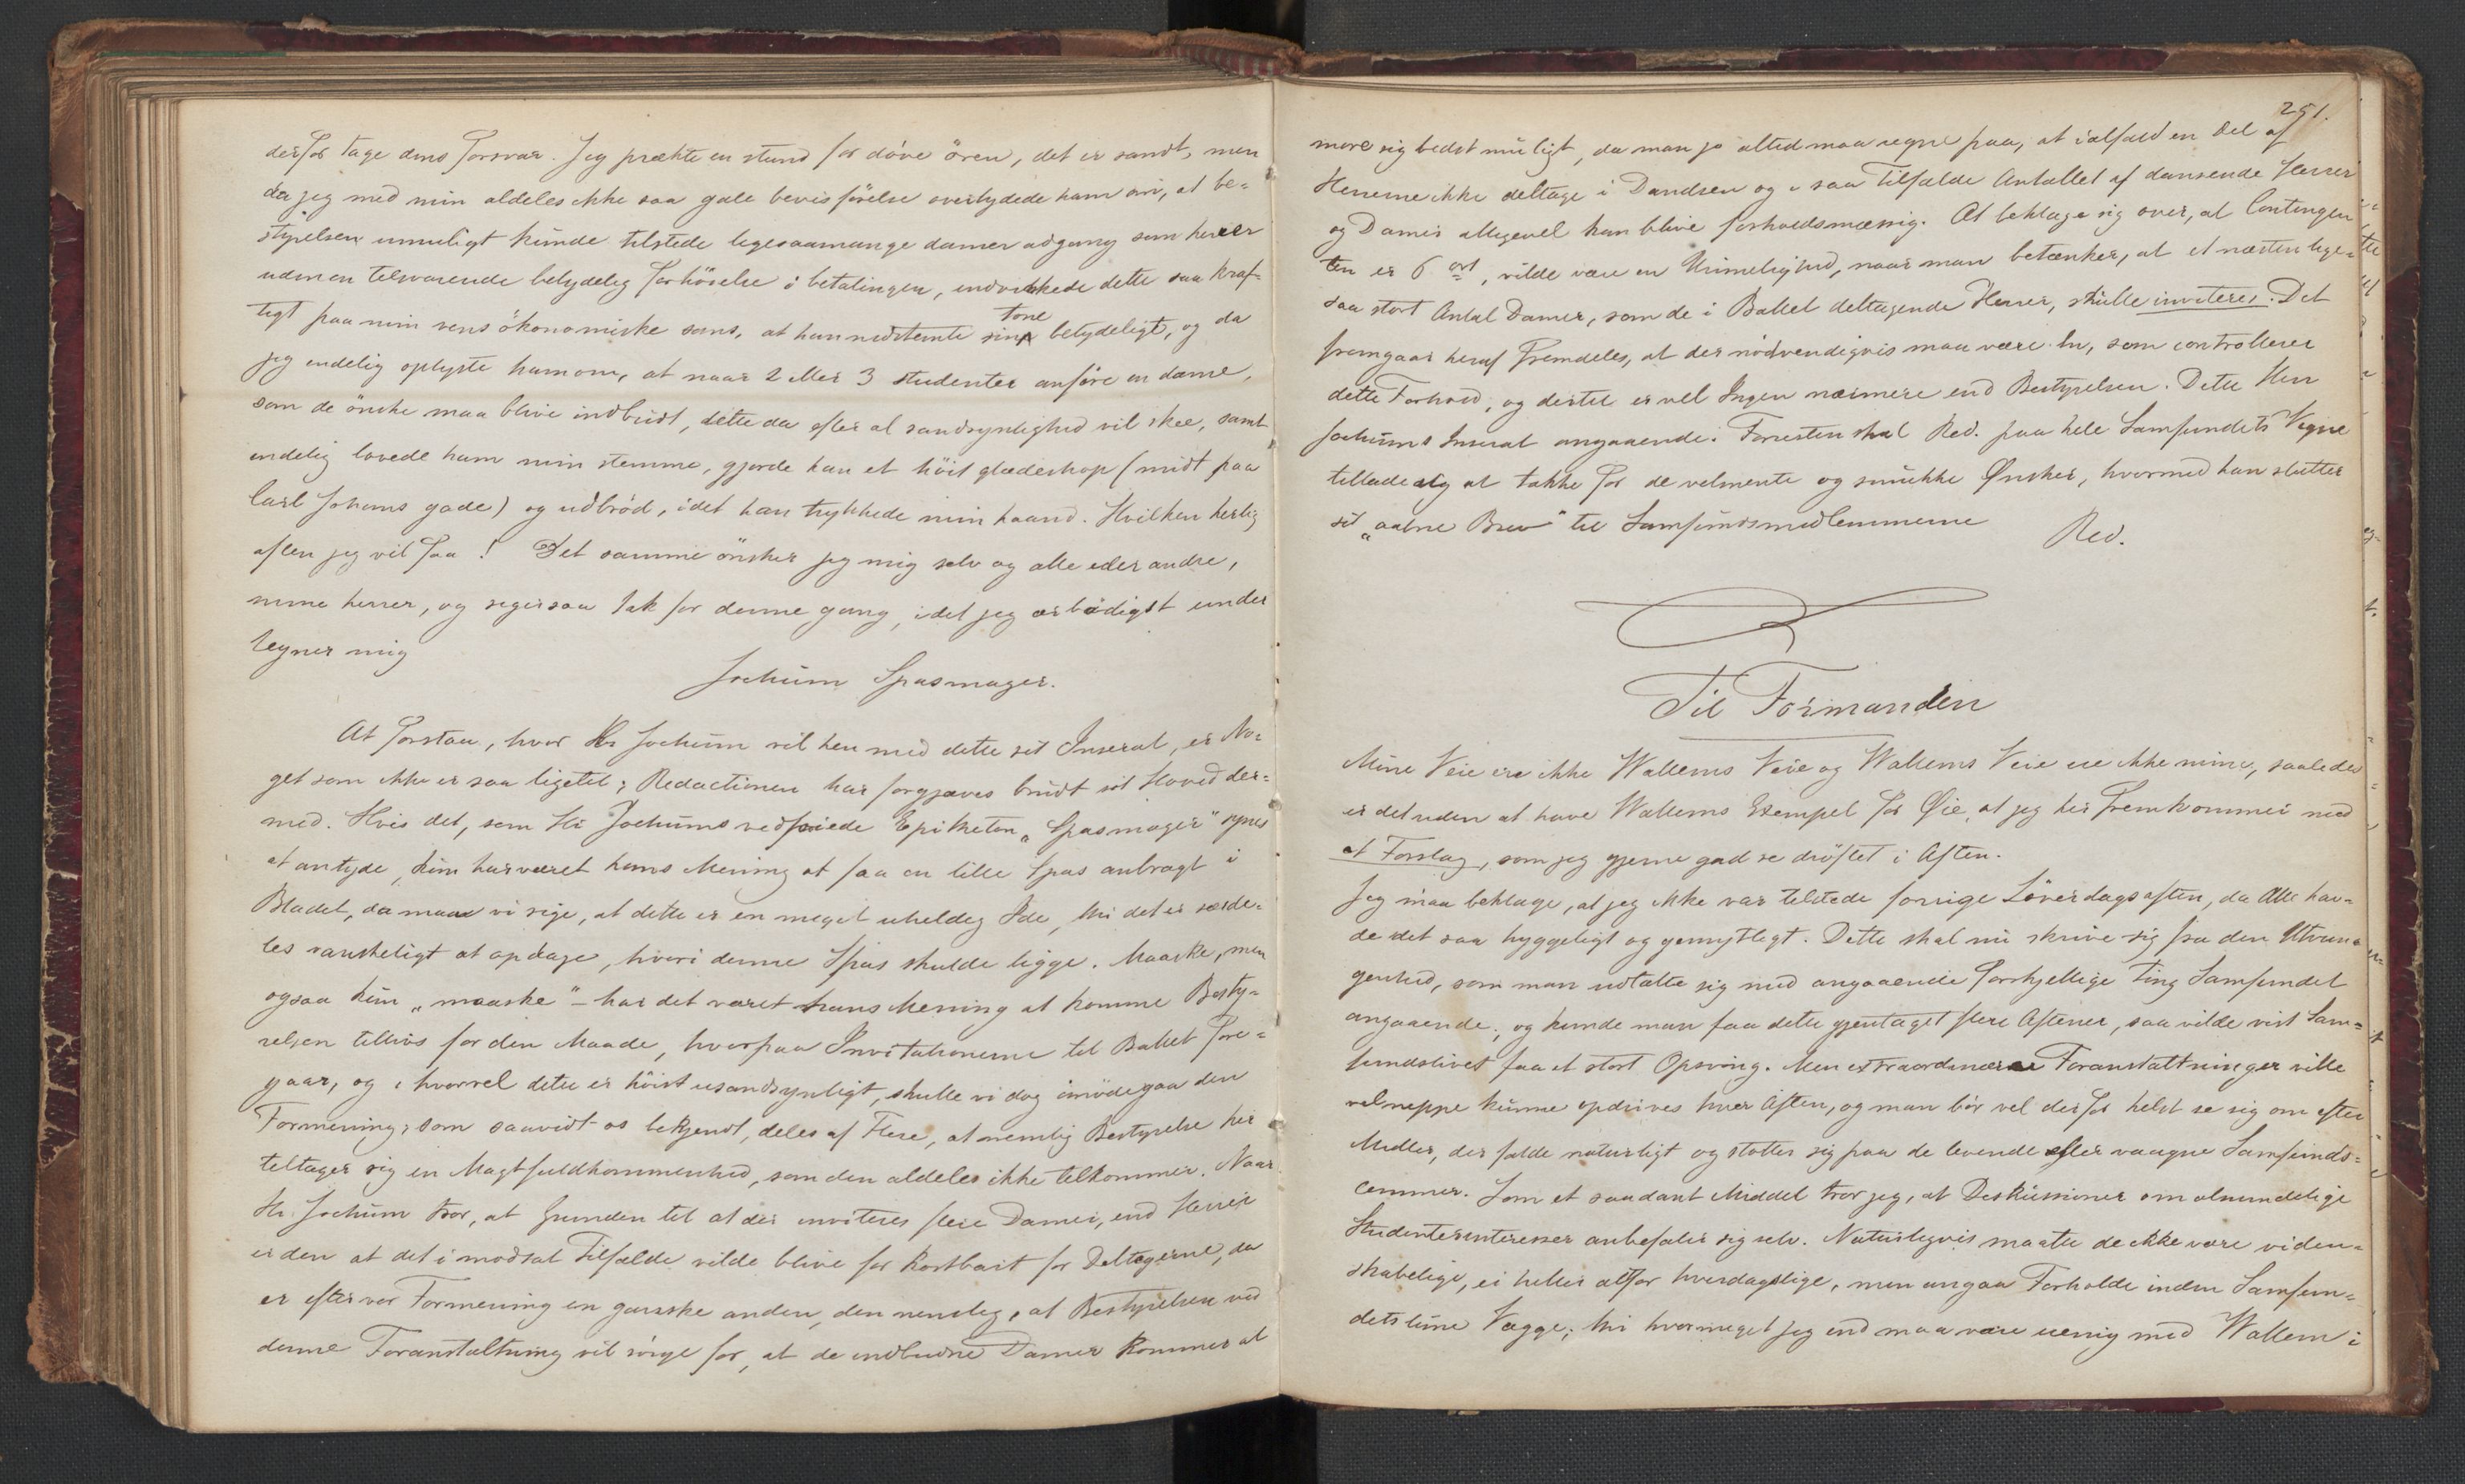 derfor tage dens Forsvar. Jeg prækte en stund for døve ören, det er sandt, men
da jeg med min aldeles ikke saa gale bevisförelse overtydede ham om, at be-
styrelsen umuligt kunde tilstede ligesaamange damer adgang som herrer
uden en tilsvarende betydelig forhöielse i betalingen, indvirkede dette saa kraf-
tigt paa min vens ökonomiske sans, at han nedstemte sin tone betydeligt, og da
jeg endelig oplyste ham om, at naar 2 eller 3 studenter anföre en dame,
som de önske maa blive indbudt, dette da efter al sandsynlighed vil skee, samt
endelig lovede ham min stemme, gjorde han et höit glædeshop (midt paa
Carl Johans gade) og udbröd, idet han trykkede min haand. Hvilken herlig
aften jeg vil faa! Det samme önsker jeg mig selv og alle eder andre,
mine herrer, og siger saa tak for denne gang, idet jeg ærbödigst under
tegner mig
Jochum Spasmager.
At forstaa, hvor Hr Jochum vil hen med dette sit Inserat, er No-
get som ikke er saa ligetil; Redactionen har forgjæves brudt sit Hoved der-
med. Hvis det, som Hr Jochums vedföiede Epitheton „Spasmager" synes
at antyde, kun har været hans Mening at faa en lille Spas anbragt i
Bladet, da maa vi sige, at dette er en meget uheldig Ide, thi det er særde-
les vanskeligt at opdage, hvori denne Spas skulde ligge. Maaske, men
ogsaa kun „maaske" – har det været hans Mening at komme Besty-
relsen tillivs for den Maade, hvorpaa Invitationerne til Ballet fore-
gaar, og ihvorvel dette er höist usandsynligt, skulle vi dog imödegaa den
Formening, som saavidt os bekjendt, deles af Flere, at nemlig Bestyrelse her
tiltager sig en Magtfuldkommenhed, som den aldeles ikke tilkommer. Naar
Hr. Jochum tror, at Grunden til at der inviteres flere Damer, end Herrer
er den at det i modsat Tilfælde vilde blive for kostbart for Deltagerne, da
er efter vor Formening en ganske anden, den nemlig, at Bestyrelsen ved
denne Foranstaltning vil sörge for, at de indbudne Damer kommer at
251.
more sig bedst muligt, da man jo altid maa regne paa, at ialfald en Del af
Herrerne ikke deltage i Dandsen og i saa Tilfælde Antallet af dansende Herrer
og Damer alligevel kan blive forholdsmæssig. At beklage sig over, at Contingen
ten er 6 ort, vilde være en Urimelighed, naar man betænker, at et næsten lige-
saa stort Antal Damer, som de i Ballet deltagende Herrer, skulle inviteres. Det
fremgaar heraf fremdeles, at der nödvendigvis maa være En, som controllerer
dette Forhold, og dertil er vel Ingen nærmere end Bestyrelsen. Dette Herr
Jochums Inserat angaaende. Forresten skal Red. paa hele Samfundets Vegne
tillade sig at takke for de velmente og smukke Ønsker, hvormed han slutter
sit „aabne Brev" til Samfundsmedlemmerne
Red.
Til Formanden
Mine Veie ere ikke Wallems Veie og Wallems Veie ere ikke mine, saaledes
er det uden at have Wallems Exempel for Øie, at jeg her fremkommer med
et Forslag, som jeg gjerne gad se dröftet i Aften.
Jeg maa beklage, at jeg ikke var tilstede forrige Löverdagsaften, da Alle hav-
de det saa hyggeligt og gemytligt. Dette skal nu skrive sig fra den Utvun-
genhed, som man udtalte sig med angaaende forskjellige Ting Samfundet
angaaende; og kunde man faa dette gjentaget flere Aftener, saa vilde vist Sam-
fundslivet faa et stort Opsving. Men extraordinære Foranstaltninger ville
vel neppe kunne opdrives hver Aften, og man bör vel derfor helst se sig om efter
Midler, der falde naturligt og stötter sig paa de levende eller vaagne Samfunds-
lemmer. Som et saadant Middel tror jeg, at Diskussioner om almindelige
Studenterinteresser anbefaler sig selv. Naturligvis maatte de ikke være viden-
skabelige, ei heller altfor hverdagslige, men angaa Forholde inden Samfun-
dets fire Vægge; thi hvormeget jeg end maa være uenig med Wallem i